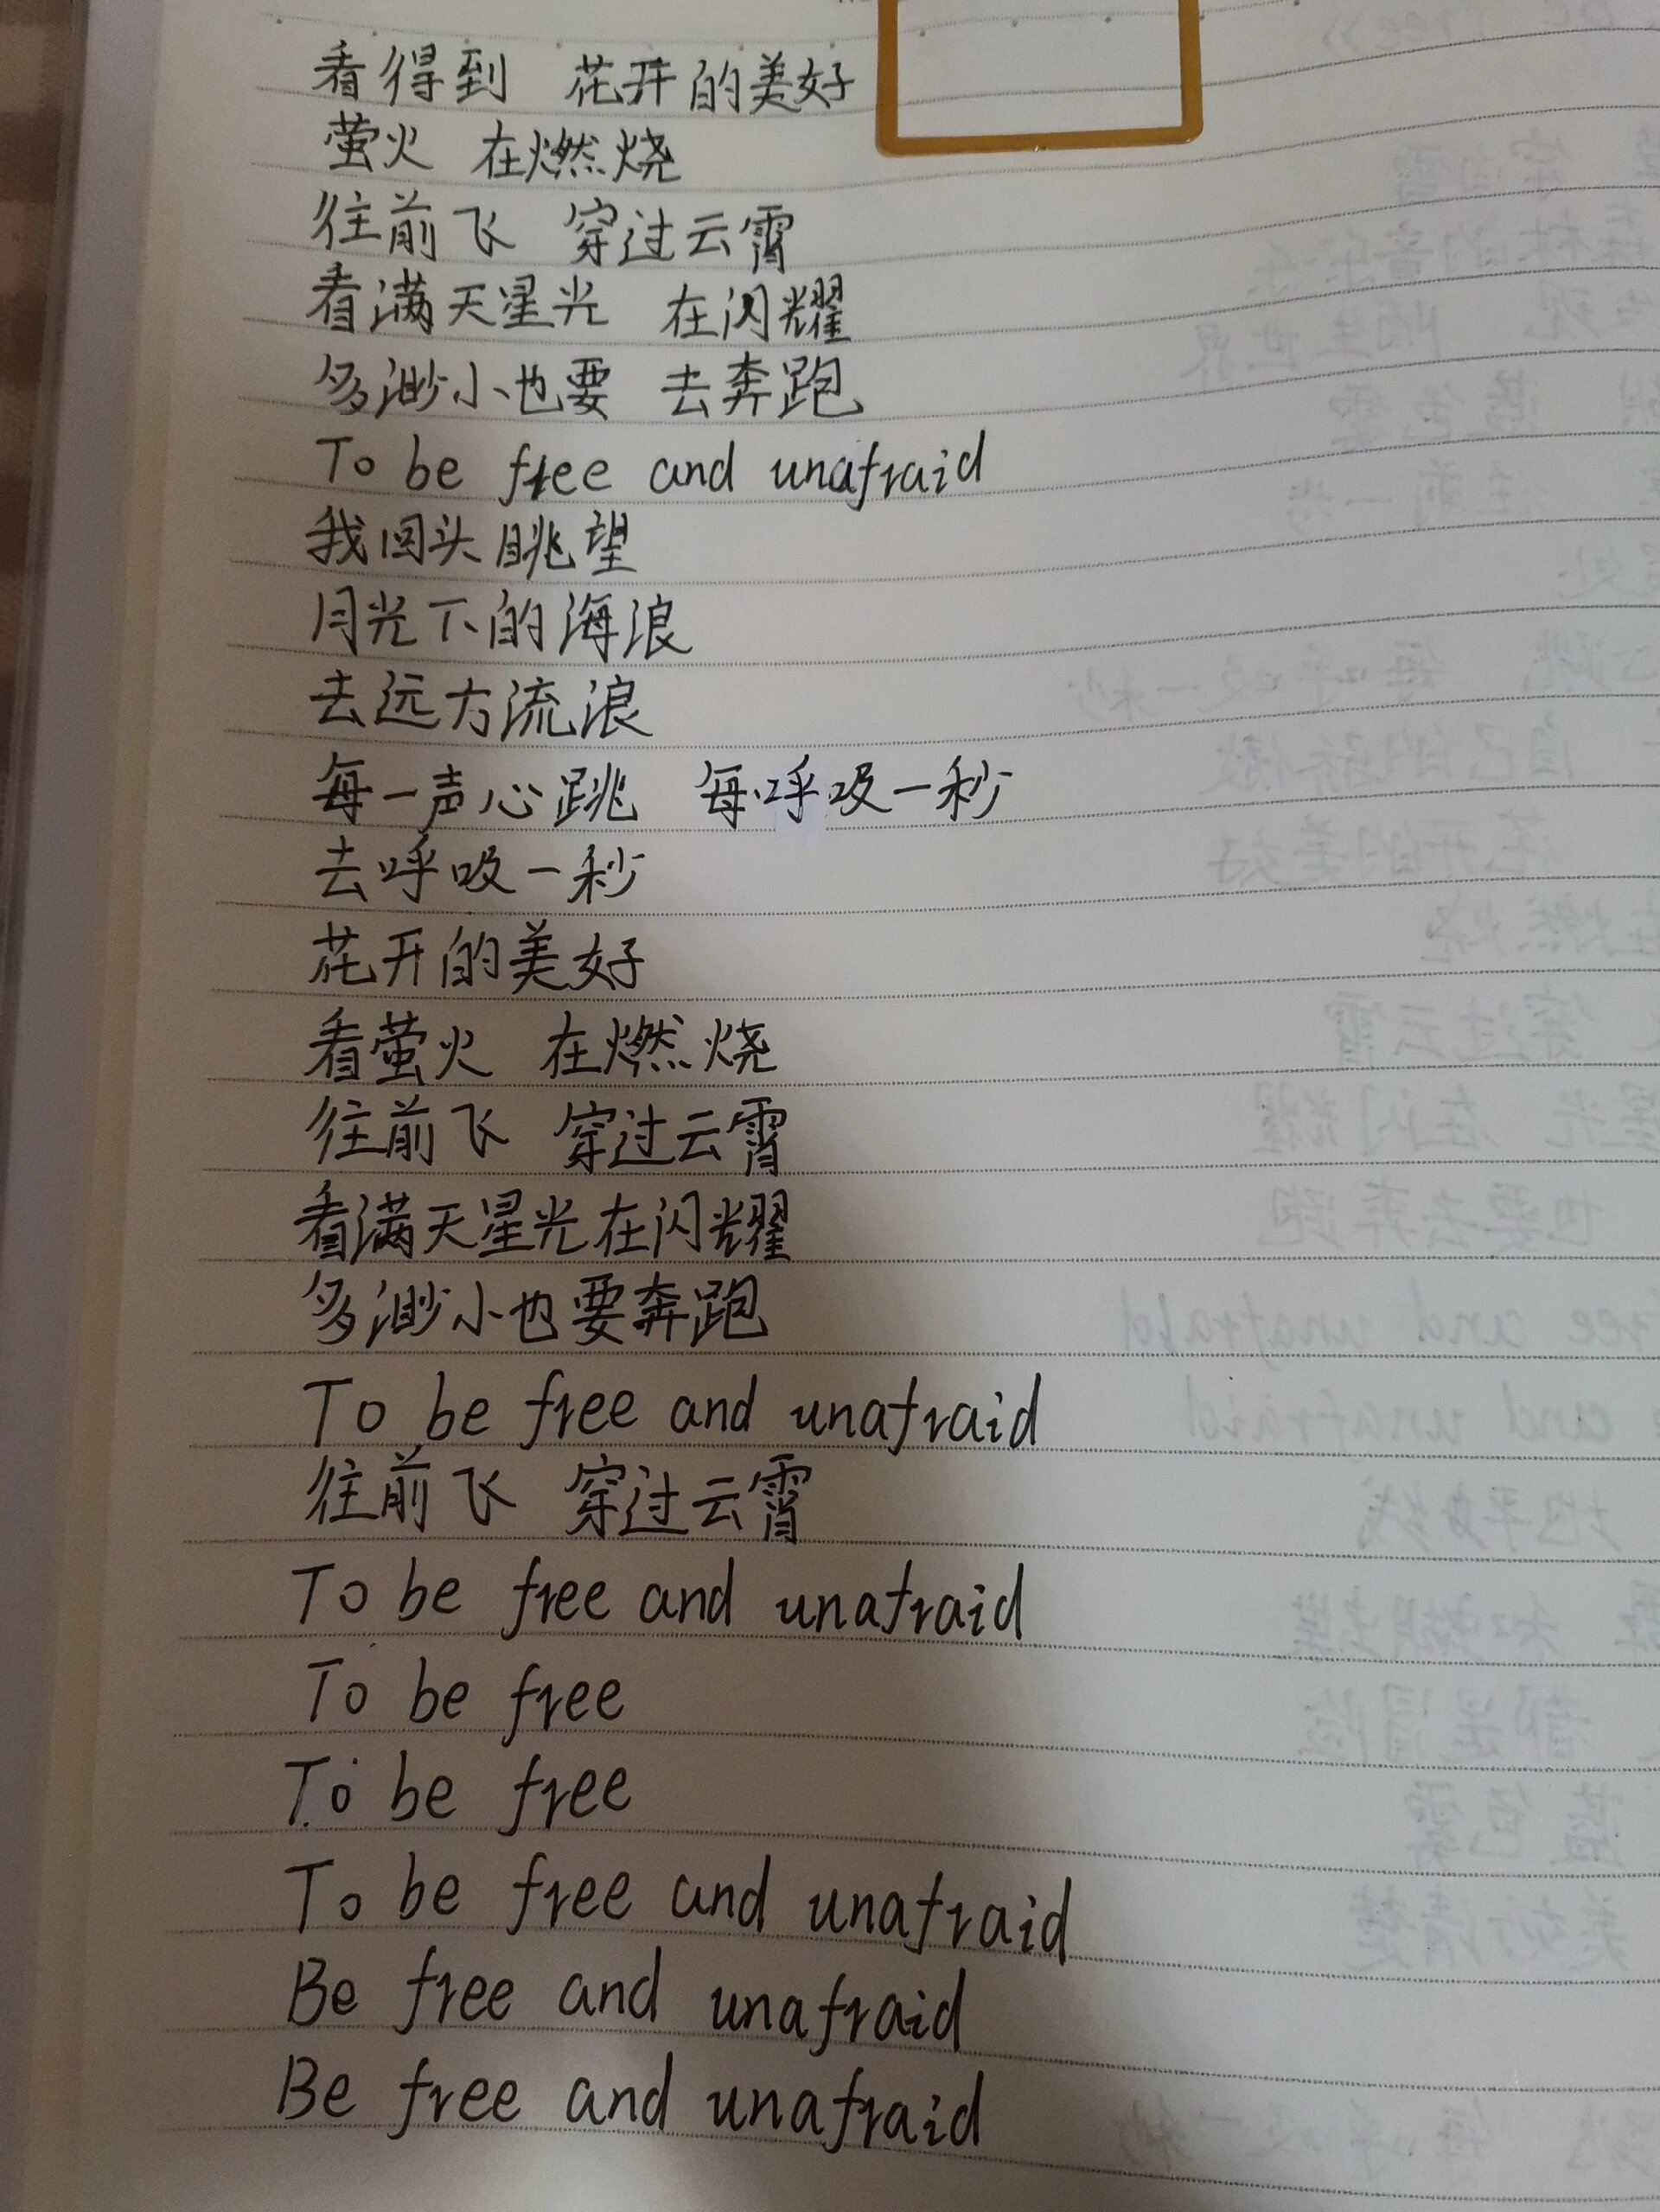 看得到 花开的美好
萤火 在燃烧
往前飞 穿过云霄
看满天星光 在闪耀
多渺小也要 去奔跑
To be free and unafraid
我回头眺望
月光下的海浪
去远方流浪
每一声心跳 每呼吸一秒
去呼吸一秒
花开的美好
看萤火 在燃烧
往前飞 穿过云霄
看满天星光在闪耀
多渺小也要奔跑
To be free and unafraid
往前飞 穿过云霄
To be free and unafraid
To be free
To be free
To be free and unafraid
Be free and unafraid
Be free and unafraid